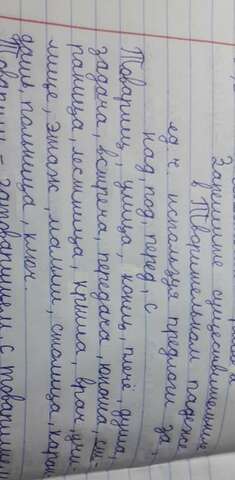 Запишите существительные
в Творительном падеже
ед. ч. используя предлоги за,
над, под, перед, с
Товарищ, улица, конец, плечо, душа,
задача, встреча, передача, юноша,
раница, лестница, крыша, врач, учи-
лище, этаж, малыш, столица, каран
даш, польница, ключ.
Товарищ - затоварищем, с товарищем,